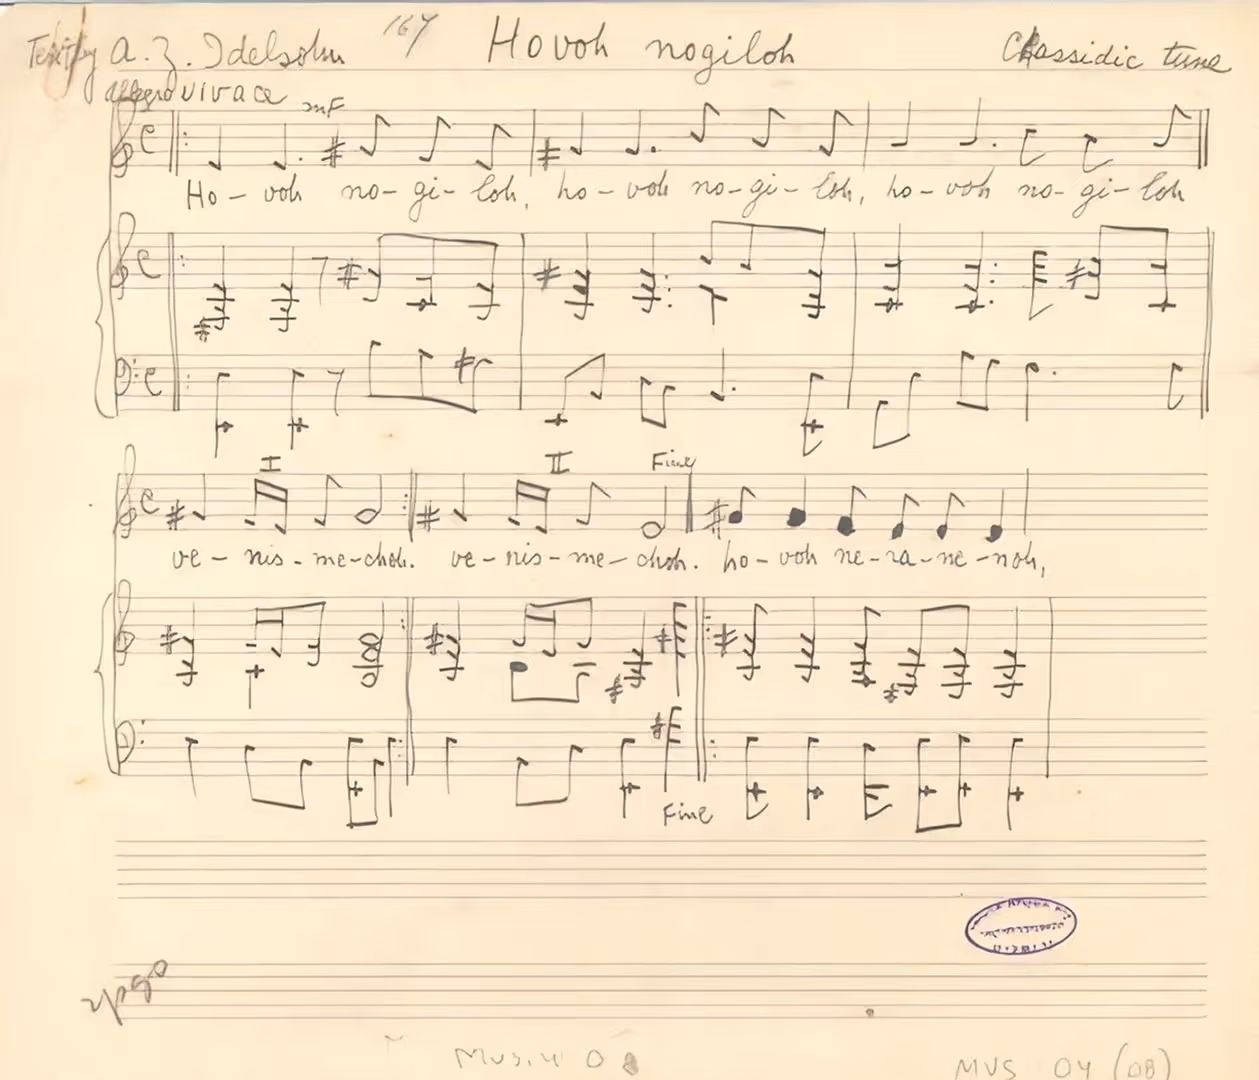 Text by A. Z. Idelsohn 167 Hovoh nogiloh Chassidic tune
Allegro vivace mF
Ho - voh no - gi - loh, ho - voh no - gi - loh, ho - voh no - gi - loh
I II Fine
ve - nis - me - choh. ve - nis - me - choh. ho - voh ne - ra - ne - noh,
Fine
MUS 04 (08)